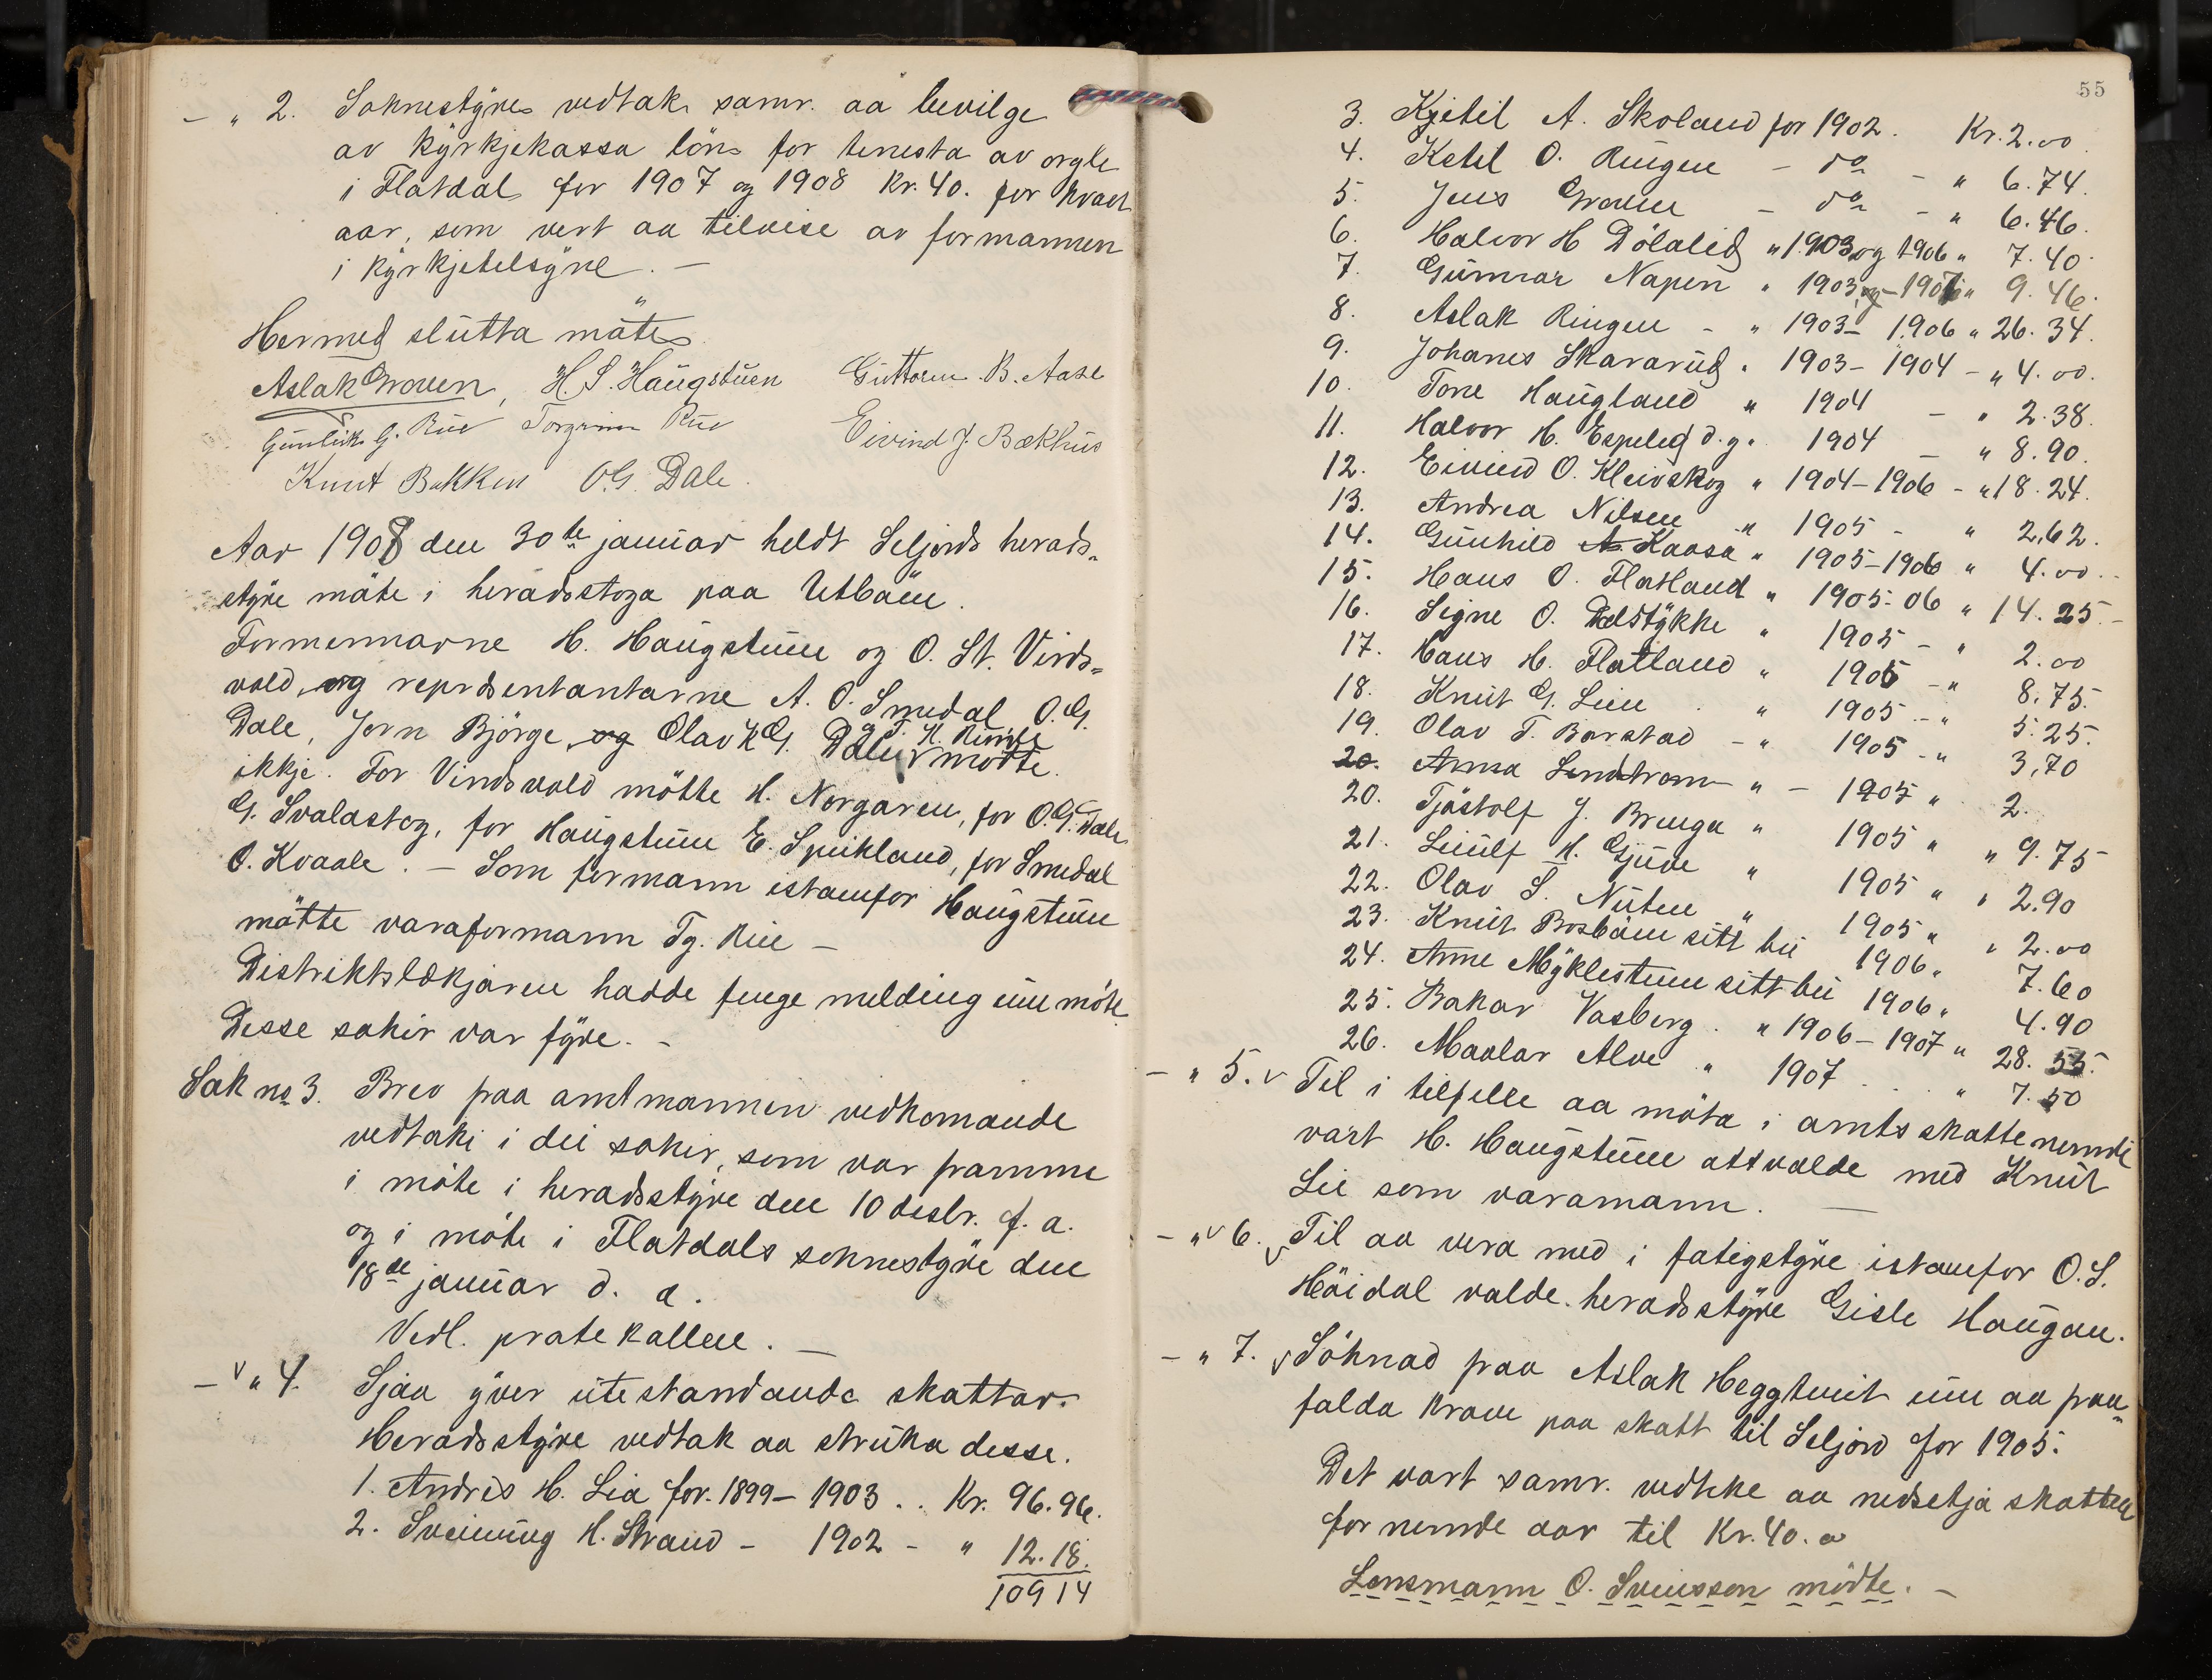 - " 2. Soknestyre vedtak samr. aa bevilge
av kyrkjekassa løn for tenesta av orgle
i Flatdal for 1907 og 1908 Kr. 40. for kvart
aar, som vert aa tilvise av formannen
i kyrkjetilsyne. -
Hermed slutta møte
Aslak Groven, H. S. Haugstuen Guttorm B. Aase
Gunleik G. Rue Torgrim Rue Eivind J. Bækhus
Knut Bakken O.G. Dale.
Aar 1908 den 30te januar heldt Seljords herads-
styre møte i heradsstoga paa Utbøen.
Formennarne H. Haugstuen og O. St. Vinds-
vold, og reprdsentantarne A. O. Smedal, O.G.
Dale, Jorn Bjørge, og Olav K G. Dale, møtte
ikkje. For Vindsvold møtte H. Norgaren, for O.G. Dale
G. Svalastog, for Haugstuen E. Spuhland, for Smedal
O. Kvaale. - Som formann istanfor Haugstuen
møtte varaformann Tg. Rue -
Distriktslækjaren hadde fenge melding um møte.
Desse sakir var fyre. -
Sak no 3. Brev paa amtmannen vedkomande
vedtaki i dei sakir, som var framme
i møte i heradsstyre den 10 desbr. f. a.
og i møte i Flatdals soknestyre den
18de januar d. a.
Vedl. protokollen. -
- " 4. Sjaa yver utestandande skattar.
Heradsstyre vedtak aa struka desse.
1. Andris H. Lia for. 1899 - 1903 .. Kr. 96.96.
2. Sveinung H. Strand - 1902 - " 12.18.
109 14
55
3. Kjetil A. Skoland for 1902. Kr. 2.00
4. Ketil O. Ringen - do - " 6.74.
5. Jens Groven - do - " 6.46.
6. Halvor H Dølalid " 1903 og 1906 " 7.40.
7. Gunnar Napen " 1903 og - 1906 " 9.46.
8. Aslak Ringen - " 1903 - 1906 " 26.34.
9. Johanes Skavarud " 1903 - 1904 - " 4.00.
10. Tone Haugland " 1904 - " 2.38.
11. Halvor H. Espelid d.y. " 1904 - " 8.90.
12. Eivind O. Kleivskog " 1904 - 1906 - " 18.24.
13. Andrea Nilsen " 1905 - " 2,62.
14. Gunhild A Kaasa " 1905 - 1906 " 4.00.
15. Hans O. Flatland " 1905-06 " 14.25. -
16. Signe O. Dælstykke " 1905 - " 2.00
17. Hans H. Flatland " 1905 - " 8.75.
18. Knut G. Lien " 1905 - " 5.25.
19. Olav T. Barstad - " 1905 - " 3,70
20. Anna Lindstrøm " - 1905 " 2.
20. Tjøstolf J. Brenga " 1905 " " 9.75
21. Liculf H. Gjuve " 1905 " " 2.90
22. Olav S. Nuten " 1905 " " 2.00
23. Knut Bosbøen sitt bu 1906 " 7.60
24. Anne Myklestuen sitt bu 1906 " 4.90
25. Bakar Vasberg. " 1906 - 1907 " 28.55.
26. Maalar Alve " 1907 . . . " 7.50
- " 5. Til i tilfelle aa møta i amtsskattenemndi
vart H. Haugstuen attvalde med Knut
Lie som varamann. -
- " 6. Til aa vera med i fatigstyre istanfor O. S.
Høidal valde heradsstyre Gisle Haugan.
- " 7. Søknad paa Aslak Heggtveit um aa fraa-
falda krave paa skatt til Seljord for 1905.
Det vart samr. vedteke aa nedsetja skatten
for nemde aar til Kr. 40.00
Lensmann O. Sveinsson møtte. -